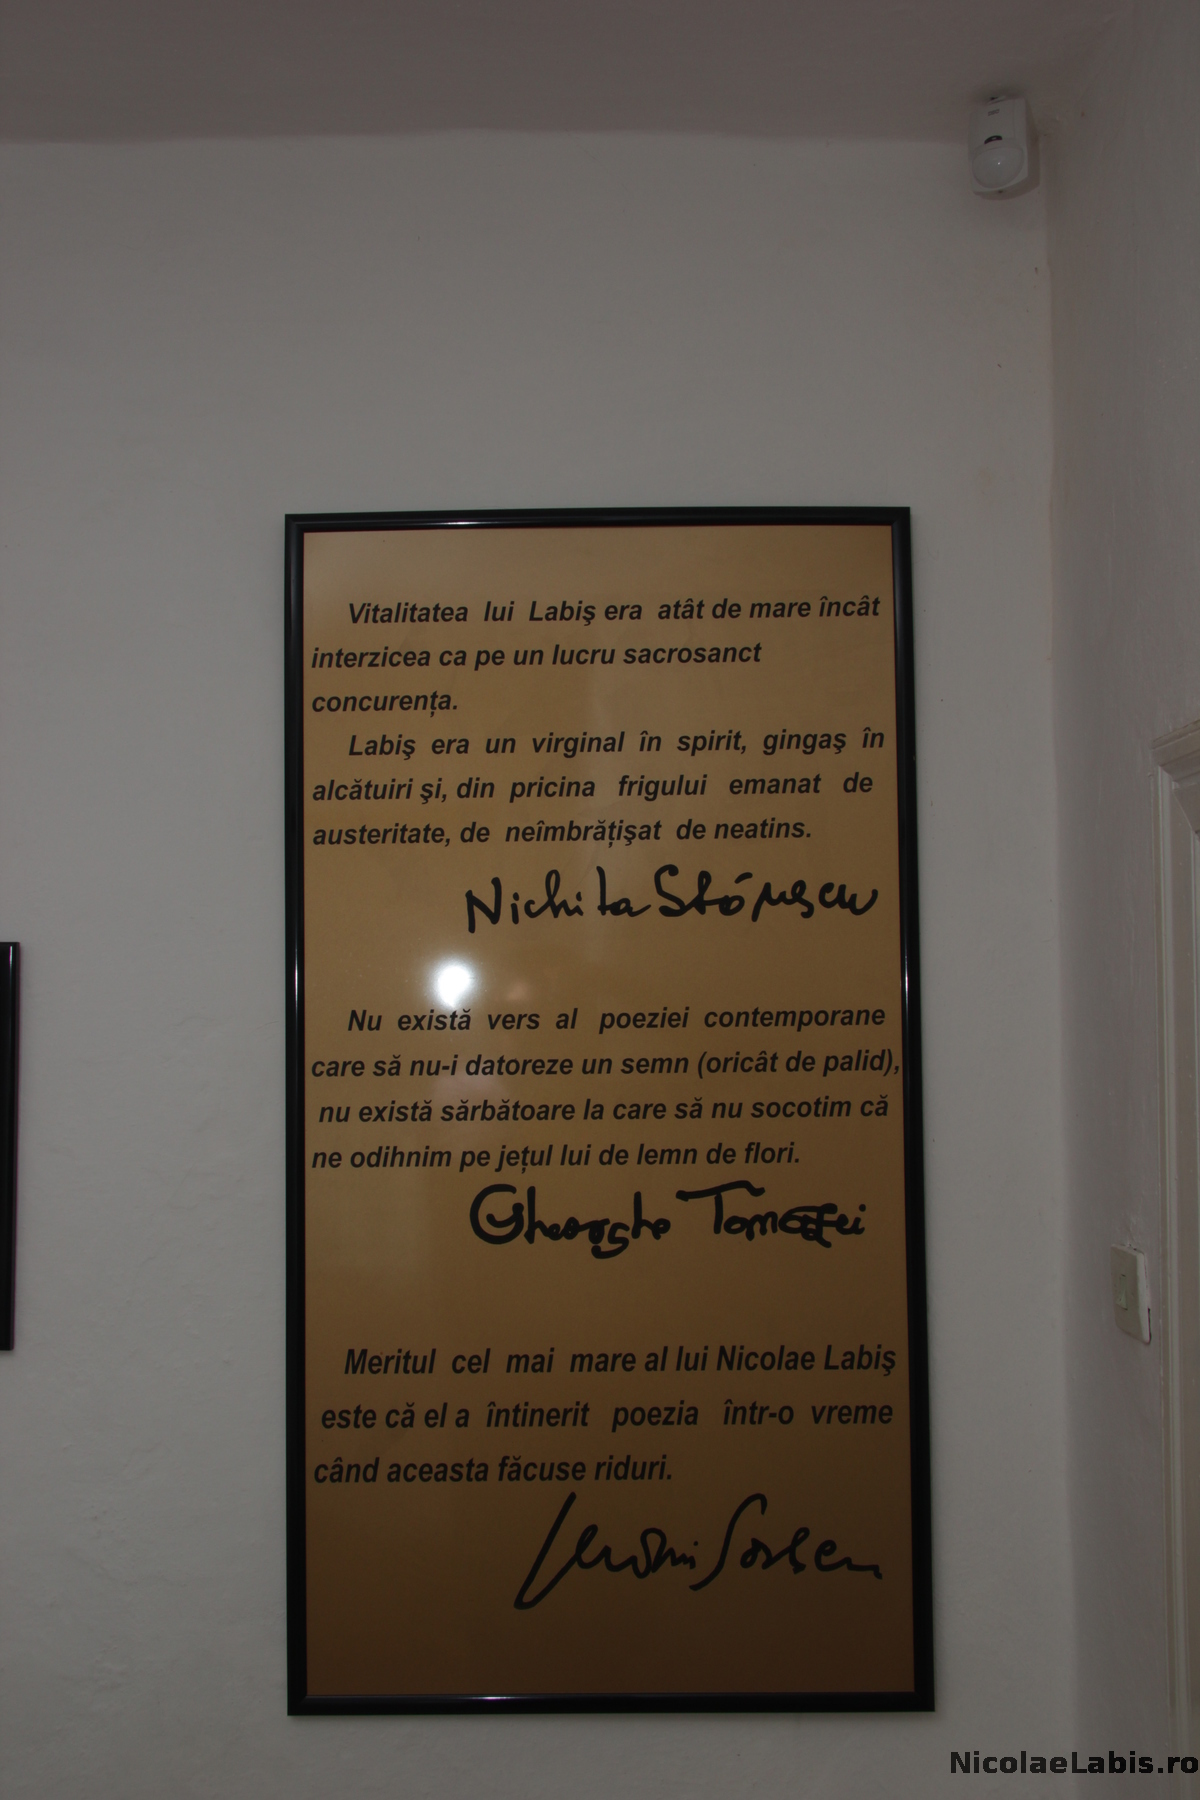 Vitalitatea lui Labiş era atât de mare încât
interzicea ca pe un lucru sacrosanct
concurența.
Labiş era un virginal în spirit, gingaş în
alcătuiri şi, din pricina frigului emanat de
austeritate, de neîmbrățişat de neatins.
Nichita Stănescu
Nu există vers al poeziei contemporane
care să nu-i datoreze un semn (oricât de palid),
nu există sărbătoare la care să nu socotim că
ne odihnim pe jețul lui de lemn de flori.
Gheorghe Tomozei
Meritul cel mai mare al lui Nicolae Labiş
este că el a întinerit poezia într-o vreme
când aceasta făcuse riduri.
NicolaeLabis.ro